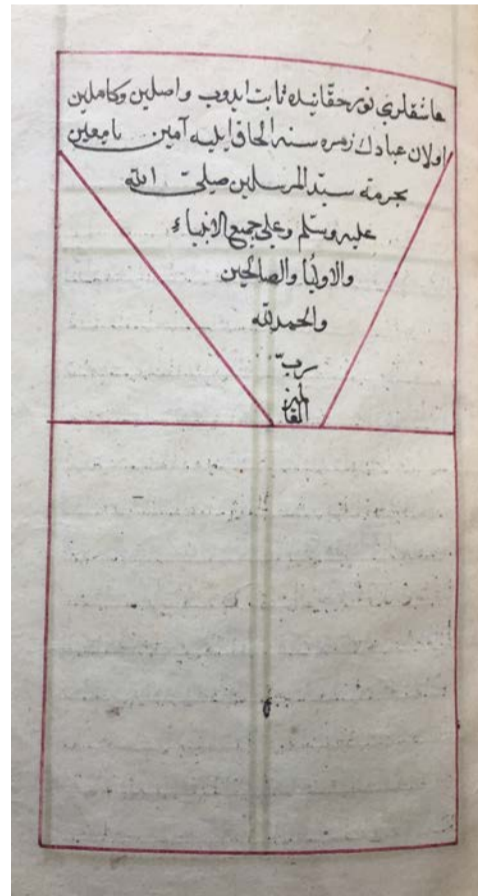 عاشقلری نور حقانیده ثابت ایدوب واصلین وکاملین
اولان عبادك زمره سنه الحاق ایلیه آمین یا معین
بحرمة سیّد المرسلین صلی الله
علیه وسلّم وعلی جمیع الانبیاء
والاولیا والصالحین
والحمد لله
ربّ
العالمین